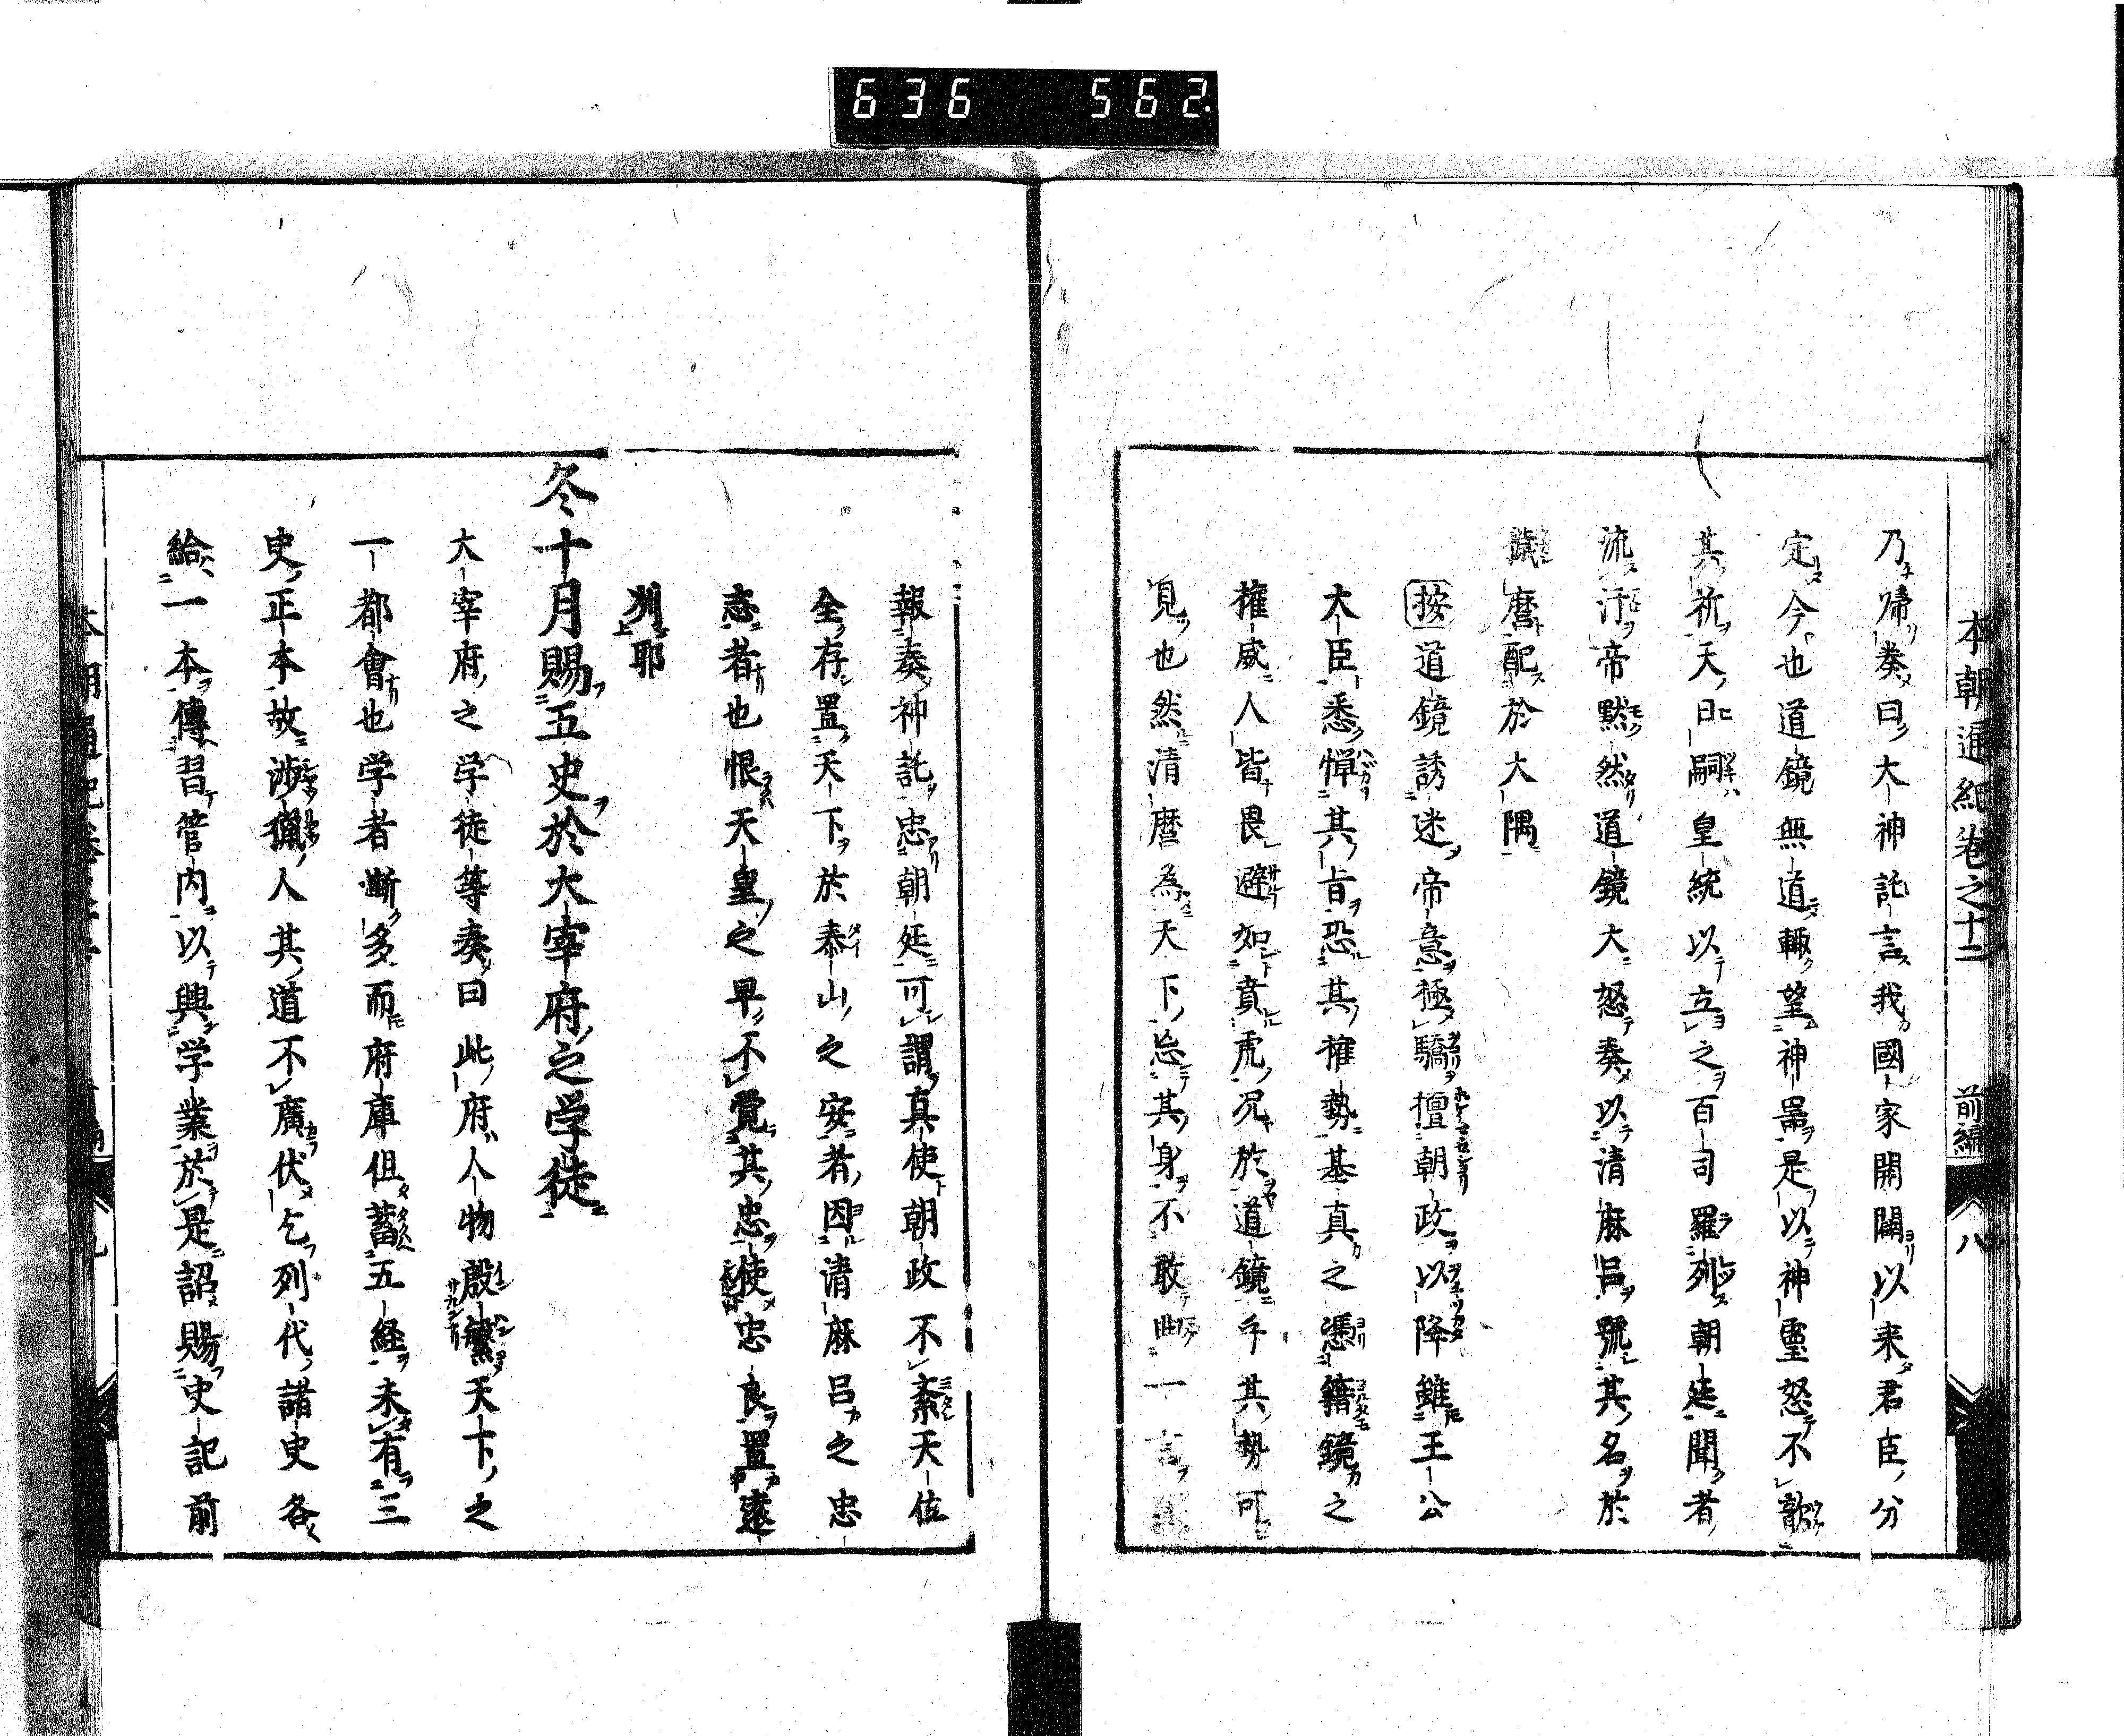 636 562
本朝通紀卷之十二 前編 八
乃帰奏曰大神託言我國家開闢以来君臣分
定今也道鏡無道輙望神噐是以神靈怒不歆
其祈天日嗣皇統以立之百司羅列朝廷聞者
流汗帝黙然道鏡大怒奏以清麻呂號其名於
麿配於大隅
按道鏡誘迷帝意極驕擅朝政以降雖王公
大臣悉憚其旨恐其権勢基真之憑籍鏡之
権威人皆畏避如賁虎况於道鏡乎其勢可
見也然清麿為天下忘其身不敢曲一言
報奏神託忠朝廷可謂真使朝政不紊天位
全存置天下於泰山之安者因清麻呂之忠
志者也恨天皇之早不覚其忠使忠良置遠
冽耶
冬十月賜五史於大宰府之学徒
大宰府之学徒等奏曰此府人物殷繁天下之
一都會也学者漸多而府庫但蓄五経未有三
史正本故涉獵人其道不廣伏乞列代諸史各
給一本傳習管内以興学業於是詔賜史記前